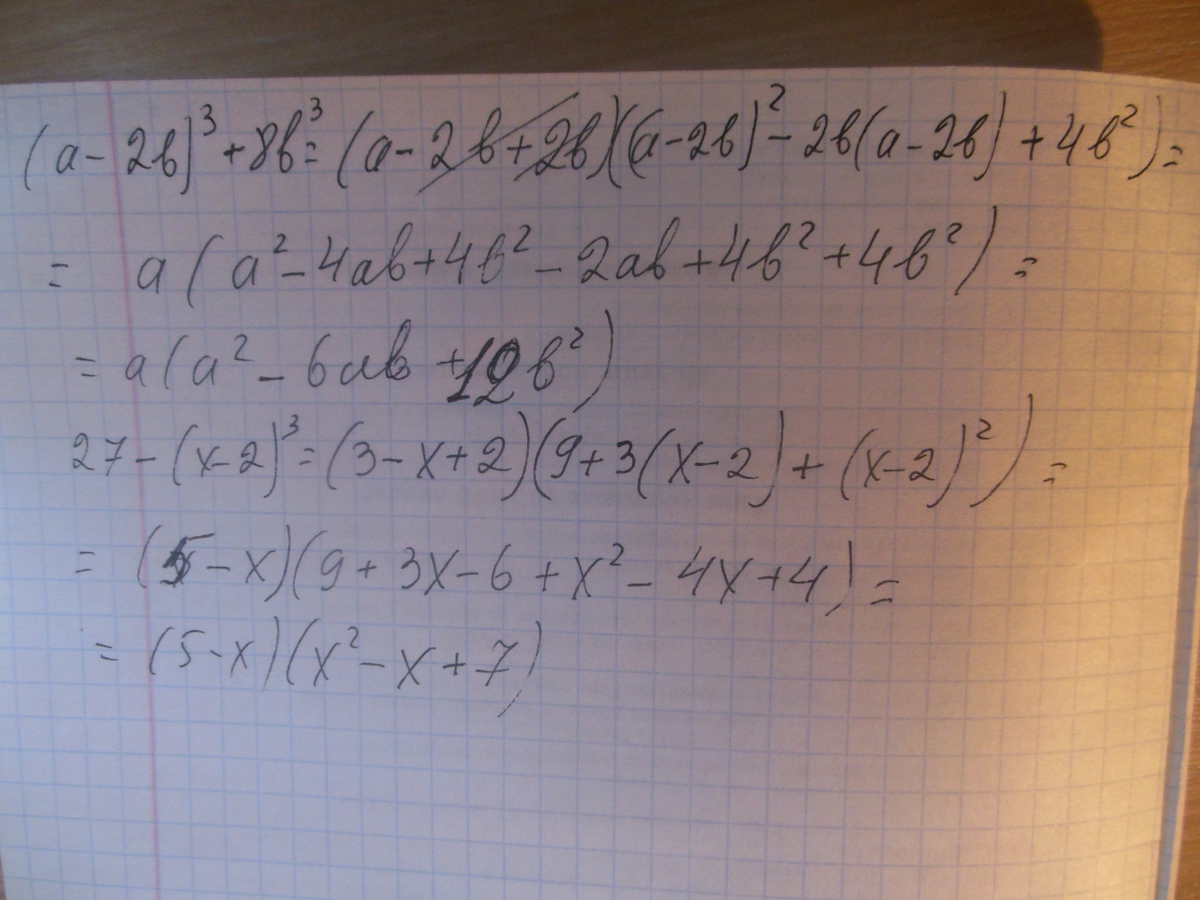 (a - 2b)³ + 8b³ = (a - 2b + 2b)((a - 2b)² - 2b(a - 2b) + 4b²) =
= a(a² - 4ab + 4b² - 2ab + 4b² + 4b²) =
= a(a² - 6ab + 12b²)
27 - (x - 2)³ = (3 - x + 2)(9 + 3(x - 2) + (x - 2)²) =
= (5 - x)(9 + 3x - 6 + x² - 4x + 4) =
= (5 - x)(x² - x + 7)